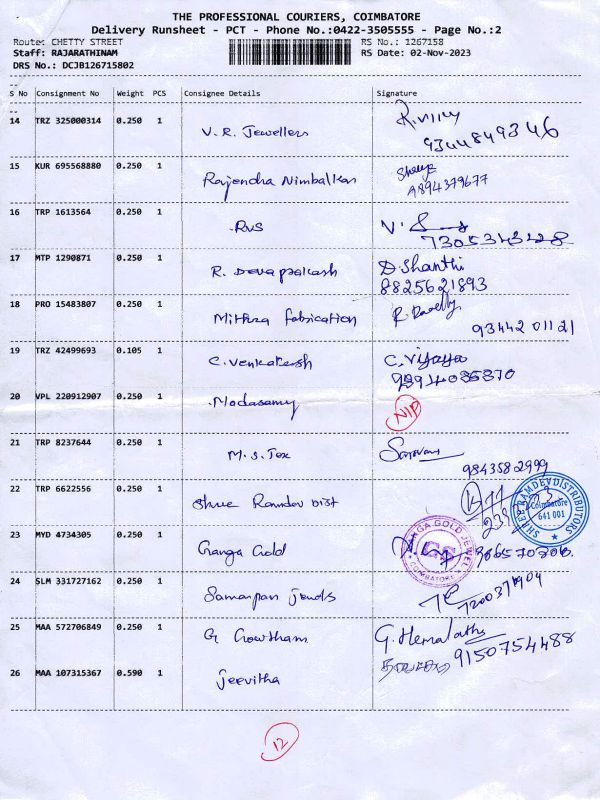 THE PROFESSIONAL COURIERS, COIMBATORE
Delivery Runsheet - PCT - Phone No.:0422-3505555 - Page No.:2
Route: CHETTY STREET RS No.: 1267158
Staff: RAJARATHINAM RS Date: 02-Nov-2023
DRS No.: DCJB126715802
S No Consignment No Weight PCS Consignee Details Signature
14 TRZ 325000314 0.250 1 V.R. Jewellers R.vijay
9344849346
15 KUR 695568880 0.250 1 Rajendra Nimbalkar
A894379677
16 TRP 1613564 0.250 1 RVS
7305343428
17 MTP 1290871 0.250 1 R. Deva prakash D.Shanthi
8825621893
18 PRO 15483807 0.250 1 Mithra fabrication
93442 01121
19 TRZ 42499693 0.105 1 C. Venkatesh C.Vijaya
20 VPL 220912907 0.250 1 Modasamy NIP
21 TRP 8237644 0.250 1 M.S. Tex Saravan
9843582999
22 TRP 6622556 0.250 1 Shree Ramdev Dist
SHREE RAMDEV DISTRIBUTORS
Coimbatore
641 001
23 MYD 4734305 0.250 1 Ganga Gold
GANGA GOLD JEWEL
GG
COIMBATORE
24 SLM 331727162 0.250 1 Samarpan jewels
25 MAA 572706849 0.250 1 G Gowtham G.Hemalatha
9150754488
26 MAA 107315367 0.590 1 Jeevitha
12